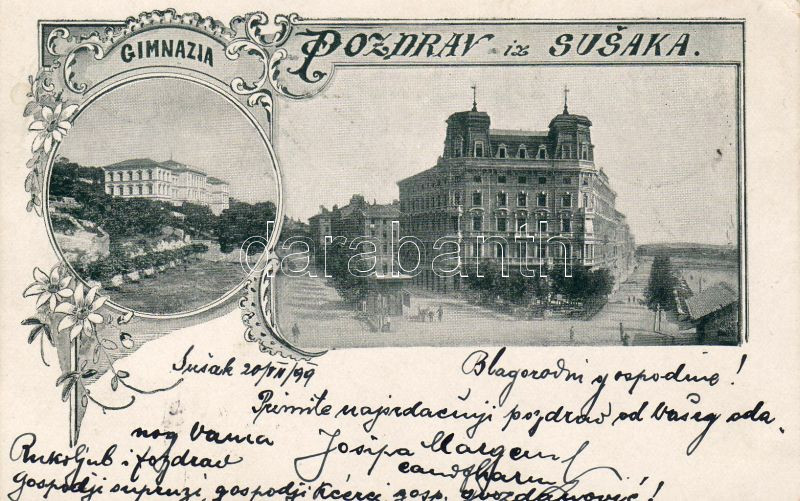 GIMNAZIA
POZDRAV iz SUŠAKA.
darabanth
Sušak 20/VII/99
Blagorodni gospodine!
Primite najsrdačniji pozdrav od Vašeg oda-
nog Vama
Josipa
Rukoljub i pozdrav
cand. pharm
Gospodji supruzi, gospodji kćerci, gosp.